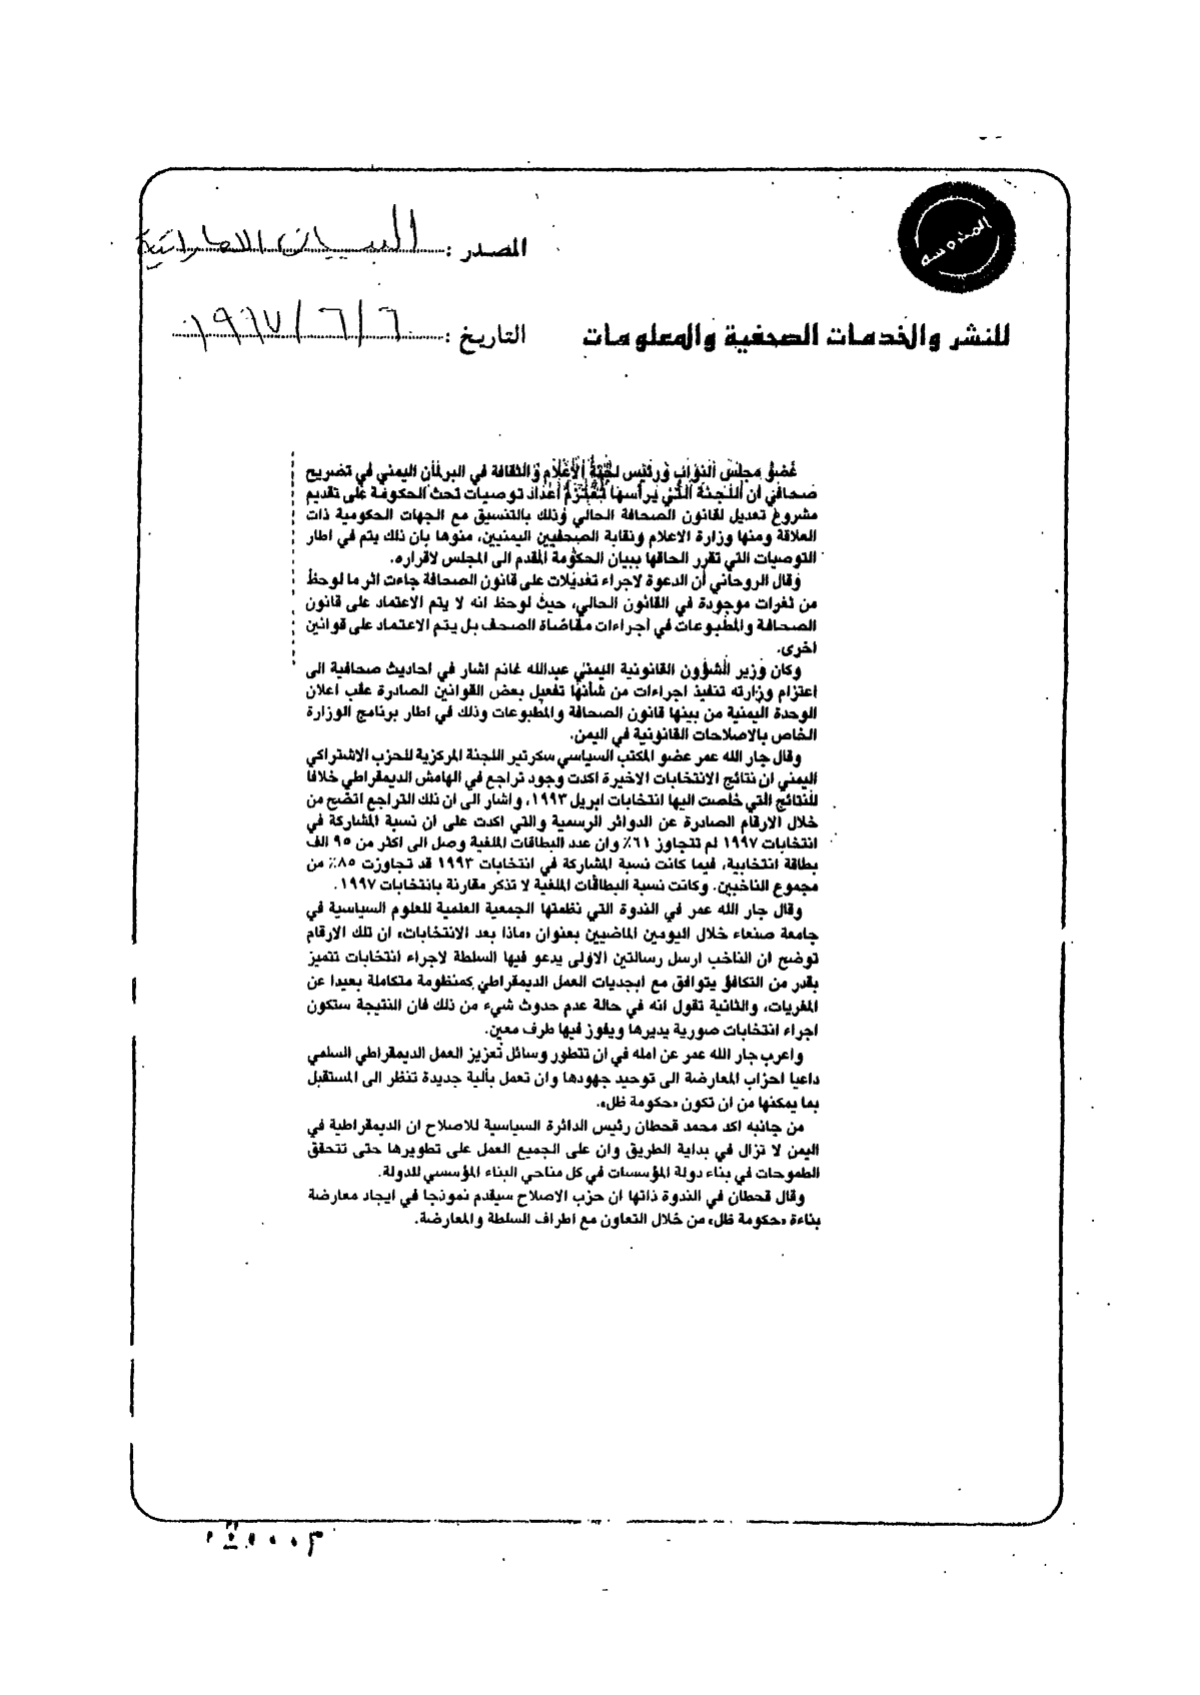 المصدر : البيان الاماراتية
للنشر والخدمات الصحفية والمعلومات
التاريخ : ١٩٩٧/٦/٦
عضو مجلس النواب ورئيس لجنة الاعلام والثقافة في البرلمان اليمني في تصريح
صحافي ان اللجنة التي يرأسها تعتزم اعداد توصيات تحث الحكومة على تقديم
مشروع تعديل لقانون الصحافة الحالي وذلك بالتنسيق مع الجهات الحكومية ذات
العلاقة ومنها وزارة الاعلام ونقابة الصحفيين اليمنيين، منوها بان ذلك يتم في اطار
التوصيات التي تقرر الحاقها ببيان الحكومة المقدم الى المجلس لاقراره.
وقال الروحاني أن الدعوة لاجراء تعديلات على قانون الصحافة جاءت اثر ما لوحظ
من ثغرات موجودة في القانون الحالي، حيث لوحظ انه لا يتم الاعتماد على قانون
الصحافة والمطبوعات في اجراءات مقاضاة الصحف بل يتم الاعتماد على قوانين
اخرى.
وكان وزير الشؤون القانونية اليمني عبدالله غانم اشار في احاديث صحافية الى
اعتزام وزارته تنفيذ اجراءات من شأنها تفعيل بعض القوانين الصادرة عقب اعلان
الوحدة اليمنية من بينها قانون الصحافة والمطبوعات وذلك في اطار برنامج الوزارة
الخاص بالاصلاحات القانونية في اليمن.
وقال جار الله عمر عضو المكتب السياسي سكرتير اللجنة المركزية للحزب الاشتراكي
اليمني ان نتائج الانتخابات الاخيرة اكدت وجود تراجع في الهامش الديمقراطي خلافا
للنتائج التي خلصت اليها انتخابات ابريل ١٩٩٣، واشار الى ان ذلك التراجع اتضح من
خلال الارقام الصادرة عن الدوائر الرسمية والتي اكدت على ان نسبة المشاركة في
انتخابات ١٩٩٧ لم تتجاوز ٦١٪ وان عدد البطاقات الملغية وصل الى اكثر من ٩٥ الف
بطاقة انتخابية، فيما كانت نسبة المشاركة في انتخابات ١٩٩٣ قد تجاوزت ٨٥٪ من
مجموع الناخبين. وكانت نسبة البطاقات الملغية لا تذكر مقارنة بانتخابات ١٩٩٧.
وقال جار الله عمر في الندوة التي نظمتها الجمعية العلمية للعلوم السياسية في
جامعة صنعاء خلال اليومين الماضيين بعنوان «ماذا بعد الانتخابات» ان تلك الارقام
توضح ان الناخب ارسل رسالتين الاولى يدعو فيها السلطة لاجراء انتخابات تتميز
بقدر من التكافؤ يتوافق مع ابجديات العمل الديمقراطي كمنظومة متكاملة بعيدا عن
المغريات، والثانية تقول انه في حالة عدم حدوث شيء من ذلك فان النتيجة ستكون
اجراء انتخابات صورية يديرها ويفوز فيها طرف معين.
واعرب جار الله عمر عن امله في ان تتطور وسائل تعزيز العمل الديمقراطي السلمي
داعيا احزاب المعارضة الى توحيد جهودها وان تعمل بآلية جديدة تنظر الى المستقبل
بما يمكنها من ان تكون «حكومة ظل».
من جانبه اكد محمد قحطان رئيس الدائرة السياسية للاصلاح ان الديمقراطية في
اليمن لا تزال في بداية الطريق وان على الجميع العمل على تطويرها حتى تتحقق
الطموحات في بناء دولة المؤسسات في كل مناحي البناء المؤسسي للدولة.
وقال قحطان في الندوة ذاتها ان حزب الاصلاح سيقدم نموذجا في ايجاد معارضة
بناءة «حكومة ظل» من خلال التعاون مع اطراف السلطة والمعارضة.